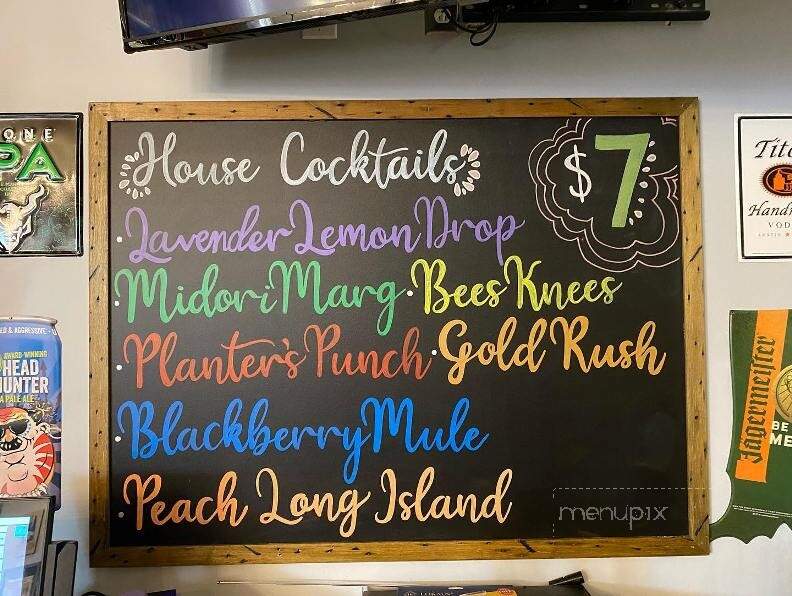 House Cocktails
$7
·Lavender Lemon Drop
·Midori Marg ·Bees Knees
·Planter's Punch ·Gold Rush
·Blackberry Mule
·Peach Long Island
menupix
ONE
PA
& AGGRESSIVE
AWARD-WINNING
HEAD
HUNTER
PALE ALE
Tito
Handm
VOD
AUSTIN
Jägermeister
BE
ME